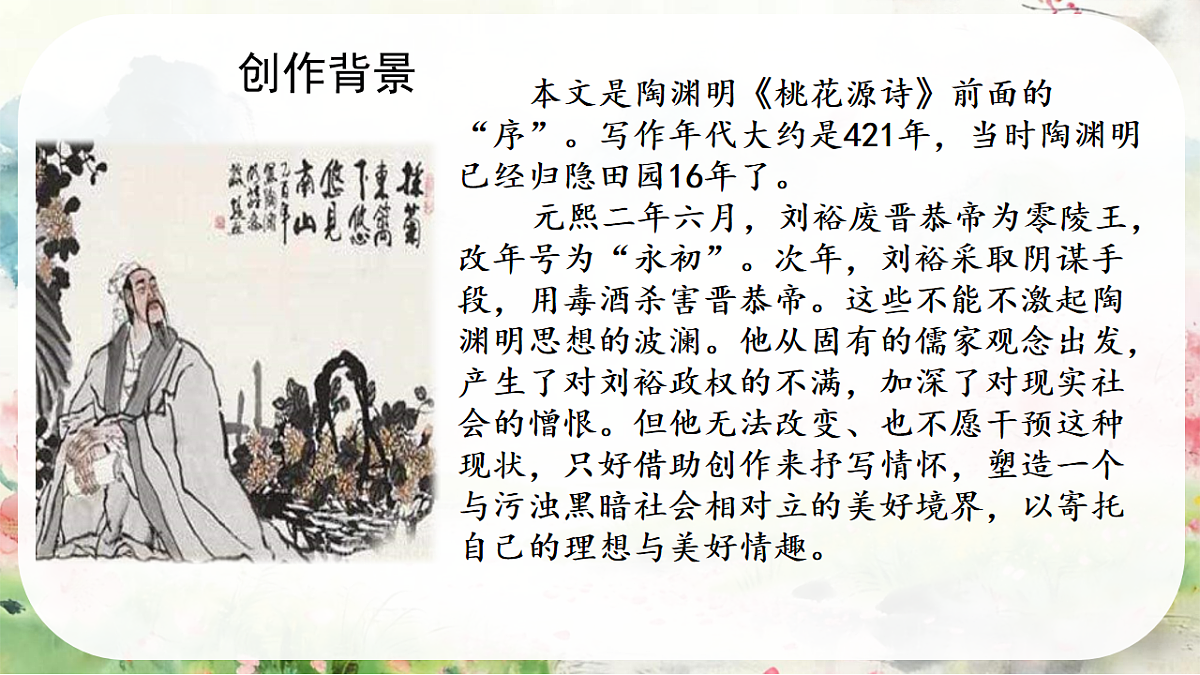 创作背景
本文是陶渊明《桃花源诗》前面的
“序”。写作年代大约是421年，当时陶渊明
已经归隐田园16年了。
元熙二年六月，刘裕废晋恭帝为零陵王，
改年号为“永初”。次年，刘裕采取阴谋手
段，用毒酒杀害晋恭帝。这些不能不激起陶
渊明思想的波澜。他从固有的儒家观念出发，
产生了对刘裕政权的不满，加深了对现实社
会的憎恨。但他无法改变、也不愿干预这种
现状，只好借助创作来抒写情怀，塑造一个
与污浊黑暗社会相对立的美好境界，以寄托
自己的理想与美好情趣。
採菊
東籬
下悠
悠見
南山